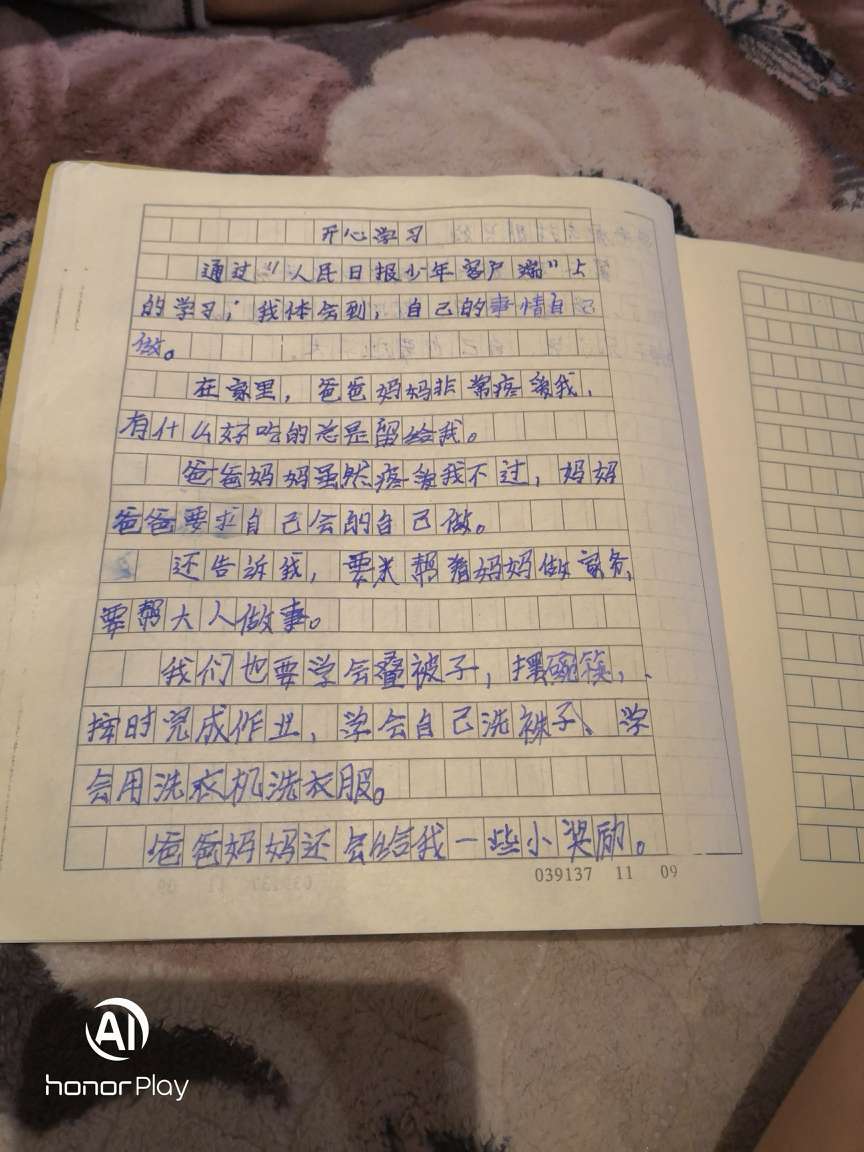 开心学习
通过“人民日报少年客户端”上
的学习，我体会到，自己的事情自己
做。
在家里，爸爸妈妈非常疼爱我，
有什么好吃的总是留给我。
爸爸妈妈虽然疼爱我不过，妈妈
爸爸要求自己会的自己做。
还告诉我，要求帮着妈妈做家务，
要帮大人做事。
我们也要学会叠被子，摆碗筷，、
按时完成作业，学会自己洗袜子、学
会用洗衣机洗衣服。
爸爸妈妈还会给我一些小奖励。
039137 11 09
AI
honor Play